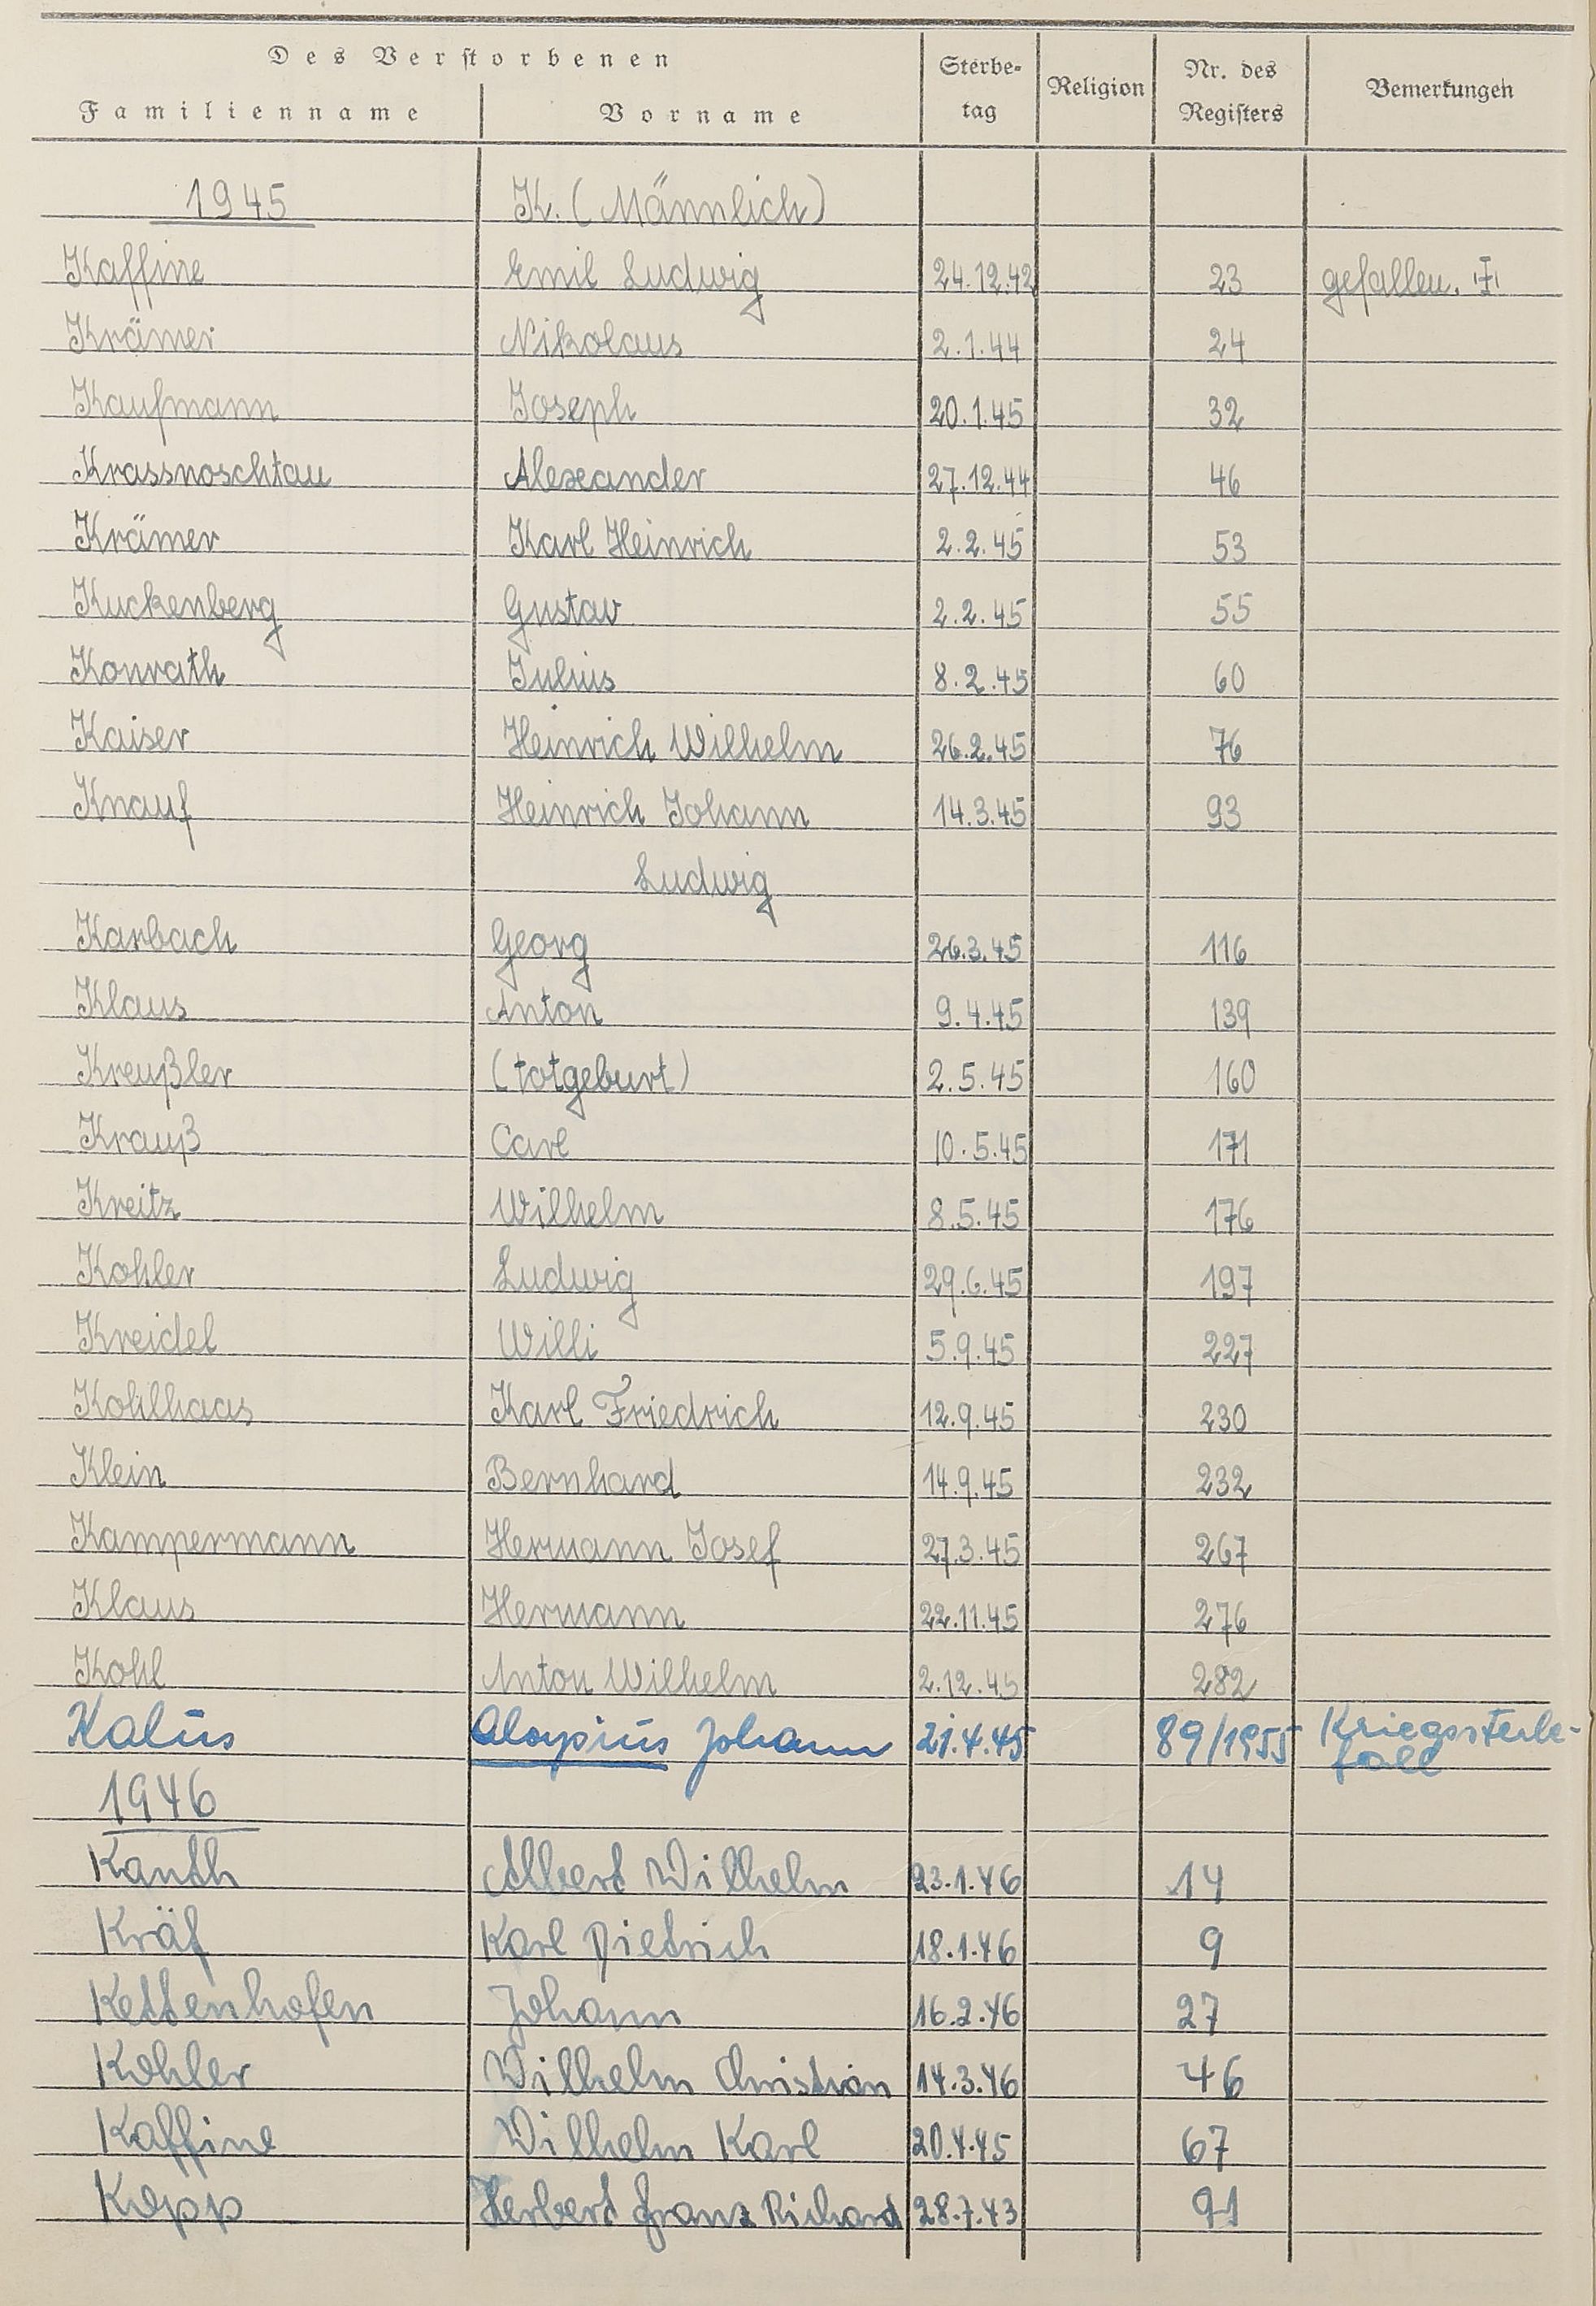 Des Verstorbenen
Familienname Vorname Sterbe-tag Religion Nr. des Registers Bemerkungen
1945 K. (Männlich)
Kaffine Emil Ludwig 24.12.42 23 gefallen.
Krämer Nikolaus 2.1.44 24
Kaufmann Joseph 20.1.45 32
Krassnoschtau Alexander 27.12.44 46
Krämer Karl Heinrich 2.2.45 53
Kuckenberg Gustav 2.2.45 55
Konrath Julius 8.2.45 60
Kaiser Heinrich Wilhelm 26.2.45 76
Knauf Heinrich Johann 14.3.45 93
Ludwig
Karbach Georg 26.3.45 116
Klaus Anton 9.4.45 139
Kreußler (totgeburt) 2.5.45 160
Krauß Carl 10.5.45 171
Kreitz Wilhelm 8.5.45 176
Kohler Ludwig 29.6.45 197
Kreidel Willi 5.9.45 227
Kohlhaas Karl Friedrich 12.9.45 230
Klein Bernhard 14.9.45 232
Kampermann Hermann Josef 27.3.45 267
Klaus Hermann 22.11.45 276
Kohl Anton Wilhelm 2.12.45 282
Kalus Aloysius Johann 21.4.45 89/1955 Kriegssterbe-
fall
1946
Kanth Albert Wilhelm 23.1.46 14
Kräf Karl Dietrich 18.1.46 9
Kettenhofen Johann 16.2.46 27
Kohler Wilhelm Christian 14.3.46 46
Kaffine Wilhelm Karl 20.4.45 67
Kopp Herbert Franz Richard 28.7.43 91